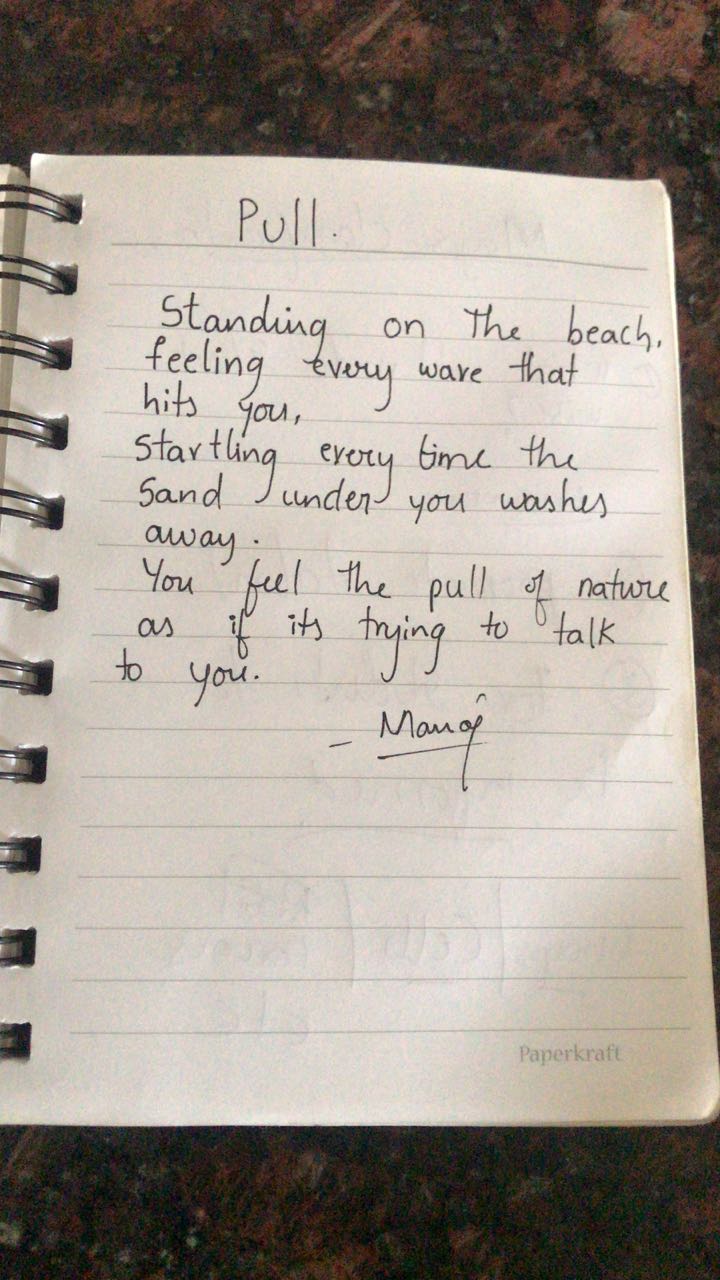 Pull.
Standing on The beach,
feeling every wave that
hits you,
Startling every time the
Sand under you washes
away.
You feel the pull of nature
as if its trying to talk
to you.
- Manoj
Paperkraft